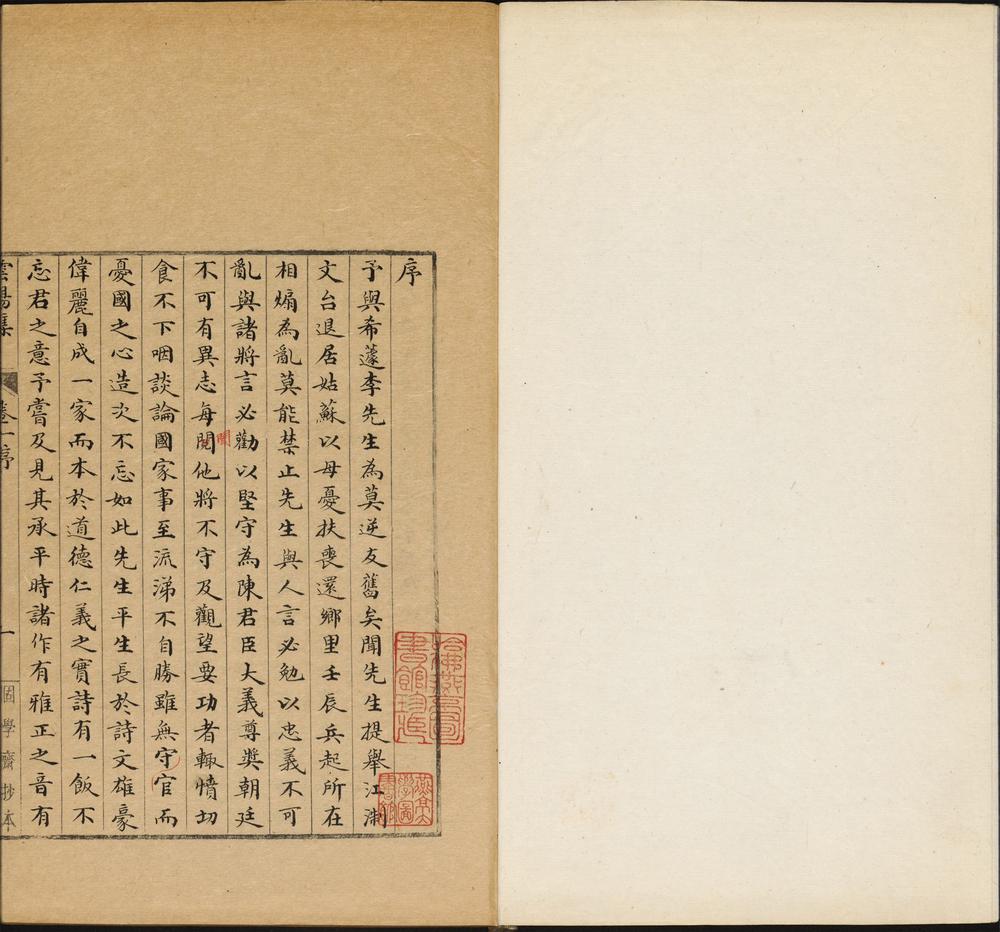 序
予與希蘧李先生為莫逆友舊矣聞先生提舉江淛
文台退居姑蘇以母憂扶喪還鄉里壬辰兵起所在
相煽為亂莫能禁止先生與人言必勉以忠義不可
亂與諸將言必勸以堅守為陳君臣大義尊奬朝廷
不可有異志每閱他將不守及觀望要功者輙憤切
聞
食不下咽談論國家事至流涕不自勝雖無守官而
憂國之心造次不忘如此先生平生長於詩文雄豪
偉麗自成一家而本於道德仁義之實詩有一飯不
忘君之意予嘗及見其承平時諸作有雅正之音有
雲陽集 卷一序 一 固學齋抄本
哈佛燕京圖書館珍藏
燕京學圖書館